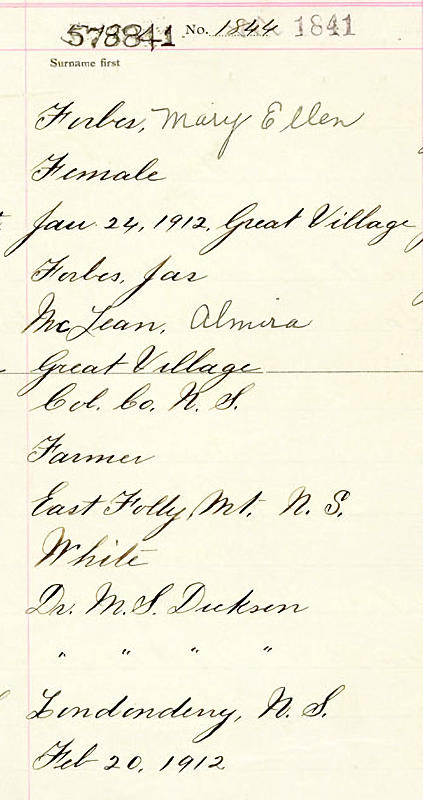 578841 No. 1844 1841
Surname first
Forbes, Mary Ellen
Female
Jan 24, 1912, Great Village
Forbes, Jas
McLean, Almira
Great Village
Col. Co. N. S.
Farmer
East Folly Mt. N. S.
White
Dr. M. S. Dickson
" " " "
Londonderry, N. S.
Feb 20, 1912